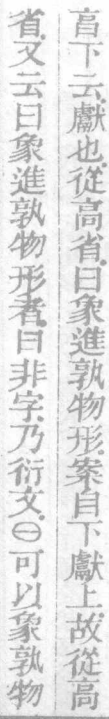 亯下云獻也從高省曰象進孰物形案自下獻上故從高
省又云曰象進孰物形者曰非字乃衍文㊀可以象孰物